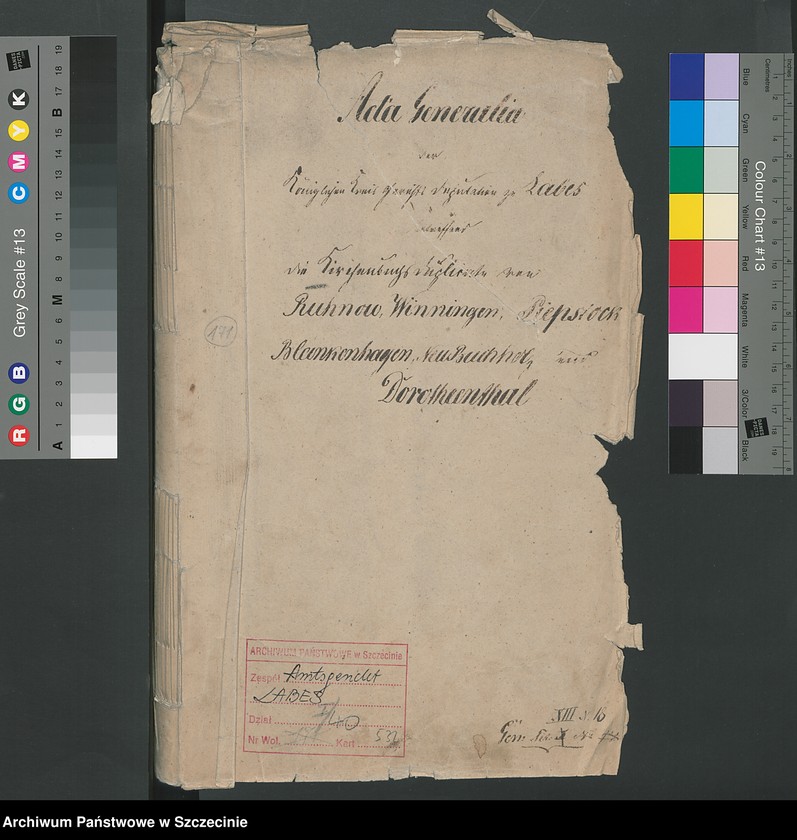 Acta Generalia
der
Königlichen Kreis Gerichts Deputation zu Labes
betreffend
die Kirchenbuchs Duplicate von
Ruhnow, Winningen, Piepstock
Blankenhagen, Neu Buchholz und
Dorotheenthal
171
ARCHIWUM PAŃSTWOWE w Szczecinie
Zespół Amtsgericht
LABES
Dział
Nr Wol. Kart 532
XIII
Gen.
Grey Scale #13
R G B C M Y K
A 1 2 3 4 5 6 M 8 9 10 11 12 13 14 15 B 17 18 19
Colour Chart #13
Blue
Cyan
Green
Yellow
Red
Magenta
White
3/Color
Black
Centimetres
Inches
Archiwum Państwowe w Szczecinie